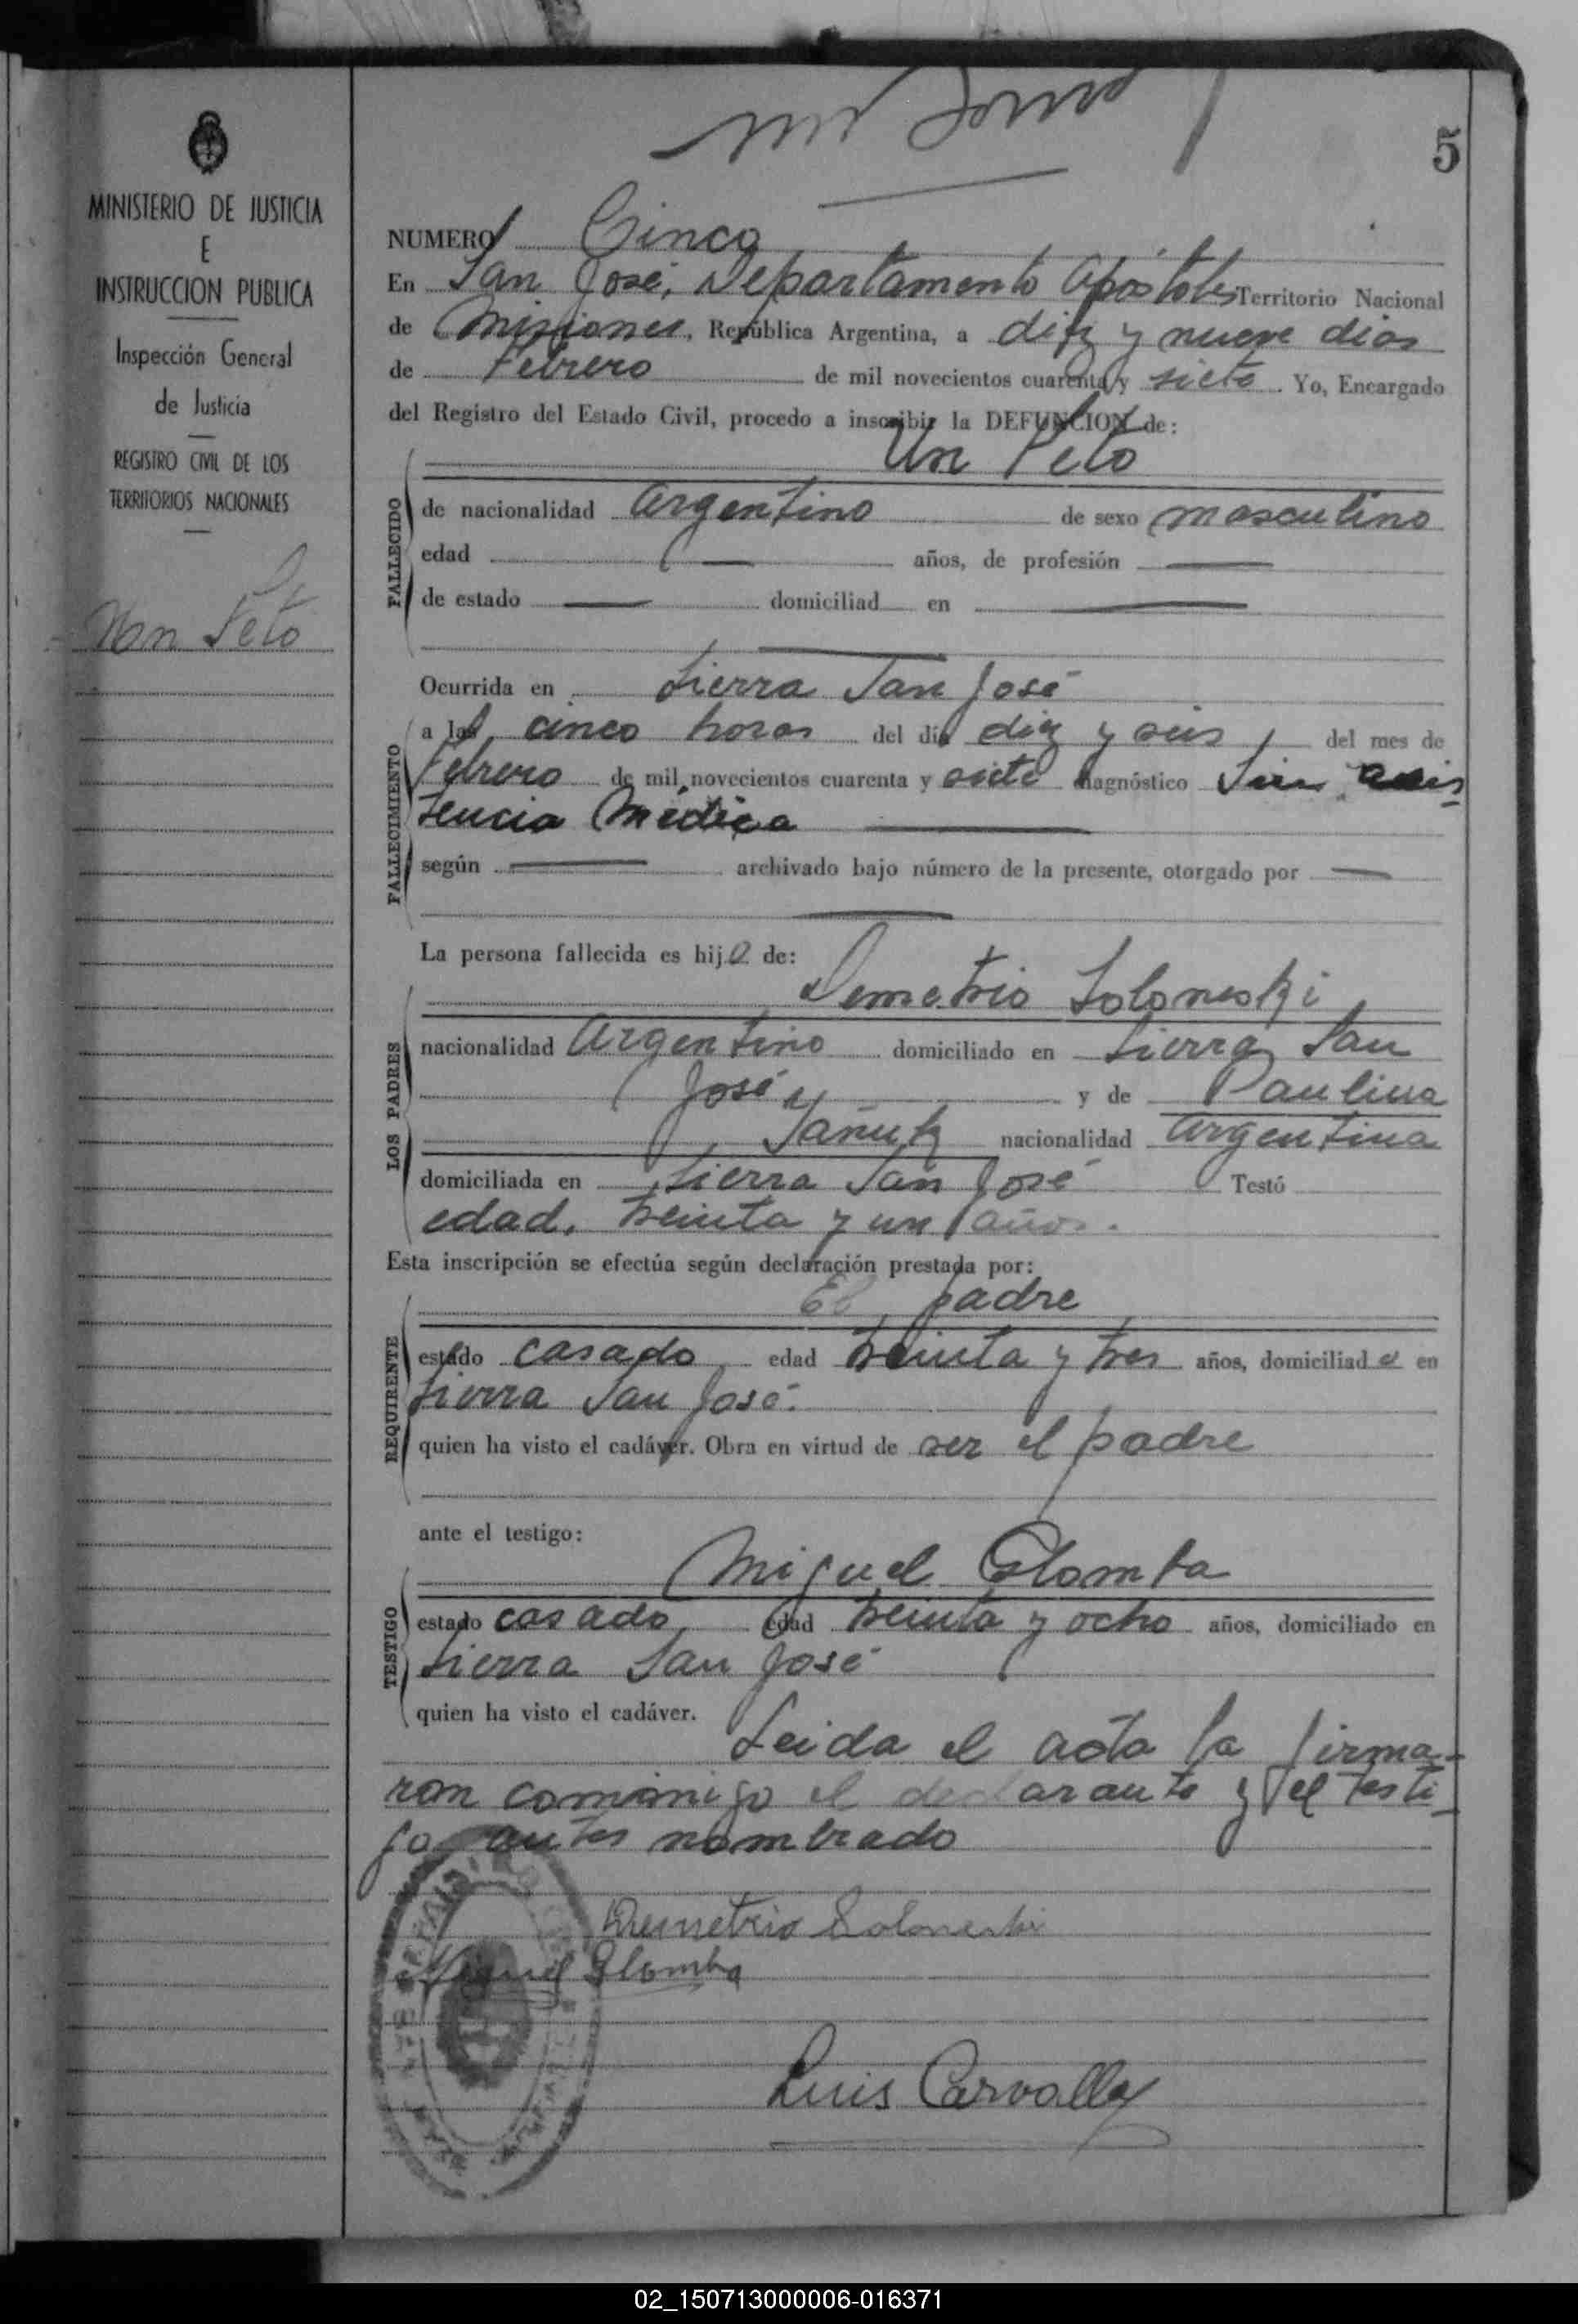 5
MINISTERIO DE JUSTICIA
E
INSTRUCCION PUBLICA
Inspección General
de Justicia
REGISTRO CIVIL DE LOS
TERRITORIOS NACIONALES
Un Feto
NUMERO Cinco
En San José, Departamento Apóstoles Territorio Nacional
de Misiones, República Argentina, a diez y nueve dias
de Febrero de mil novecientos cuarenta y siete. Yo, Encargado
del Registro del Estado Civil, procedo a inscribir la DEFUNCION de:
Un Feto
FALLECIDO
de nacionalidad Argentino de sexo masculino
edad — años, de profesión —
de estado — domiciliad en —
Ocurrida en Sierra San José
FALLECIMIENTO
a las cinco horas del día diez y seis, del mes de
Febrero de mil novecientos cuarenta y siete diagnóstico Sin asis-
tencia Médica —
según — archivado bajo número de la presente, otorgado por —
La persona fallecida es hijo de:
LOS PADRES
Demetrio Soloneski
nacionalidad Argentino domiciliado en Sierra San
José y de Paulina
Yañuk nacionalidad Argentina
domiciliada en Sierra San José Testó
edad, treinta y un años.
Esta inscripción se efectúa según declaración prestada por:
El padre
REQUIRENTE
estado casado edad treinta y tres años, domiciliado en
Sierra San José.
quien ha visto el cadáver. Obra en virtud de ser el padre
ante el testigo:
Miguel Glomba
TESTIGO
estado casado, edad treinta y ocho años, domiciliado en
Sierra San José
quien ha visto el cadáver.
Leida el acta la firma-
ron conmigo el declarante y el testi-
go antes nombrado
Demetrio Soloneski
Miguel Glomba
Luis Carvallo
02_150713000006-016371